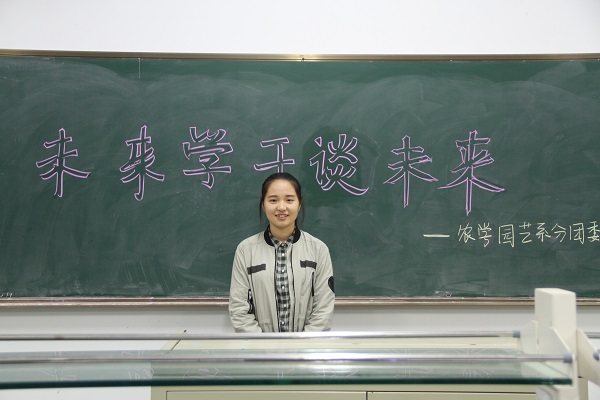 未来学干谈未来
—农学园艺系分团委